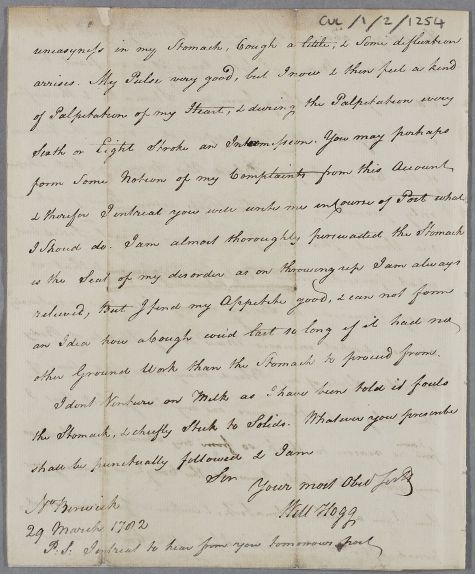 CUL/1/2/1254
uneasyness in my Stomach, Cough a little, & Some defluxion
arrises. My Pulse very good, but I now & then feel a kind
of Palpitation of my Heart, & during the Palpitation every
Sixth or Eight Stroke an Intermission. You may perhaps
form Some Notion of my Complaints from this Account
& therefor I intreat you will write me in Course of Post what
I Shoud do. I am almost thoroughly perswaded the Stomach
is the Seat of my disorder as on throwing up I am always
relieved, But I find my Appetite good, & can not form
an Idea how a Cough cou'd last so long if it had no
other Ground Work than the Stomach to proceed from.
I dont Venture on Milk as I have been told it fouls
the Stomach, & chiefly Stick to Solids. Whatever you prescribe
shall be punctually followed & I am
Sir
Your most Obed Serv
Will Hogg
No Berwick
29 March 1782
P.S. I intreat to hear from you tomorrows post